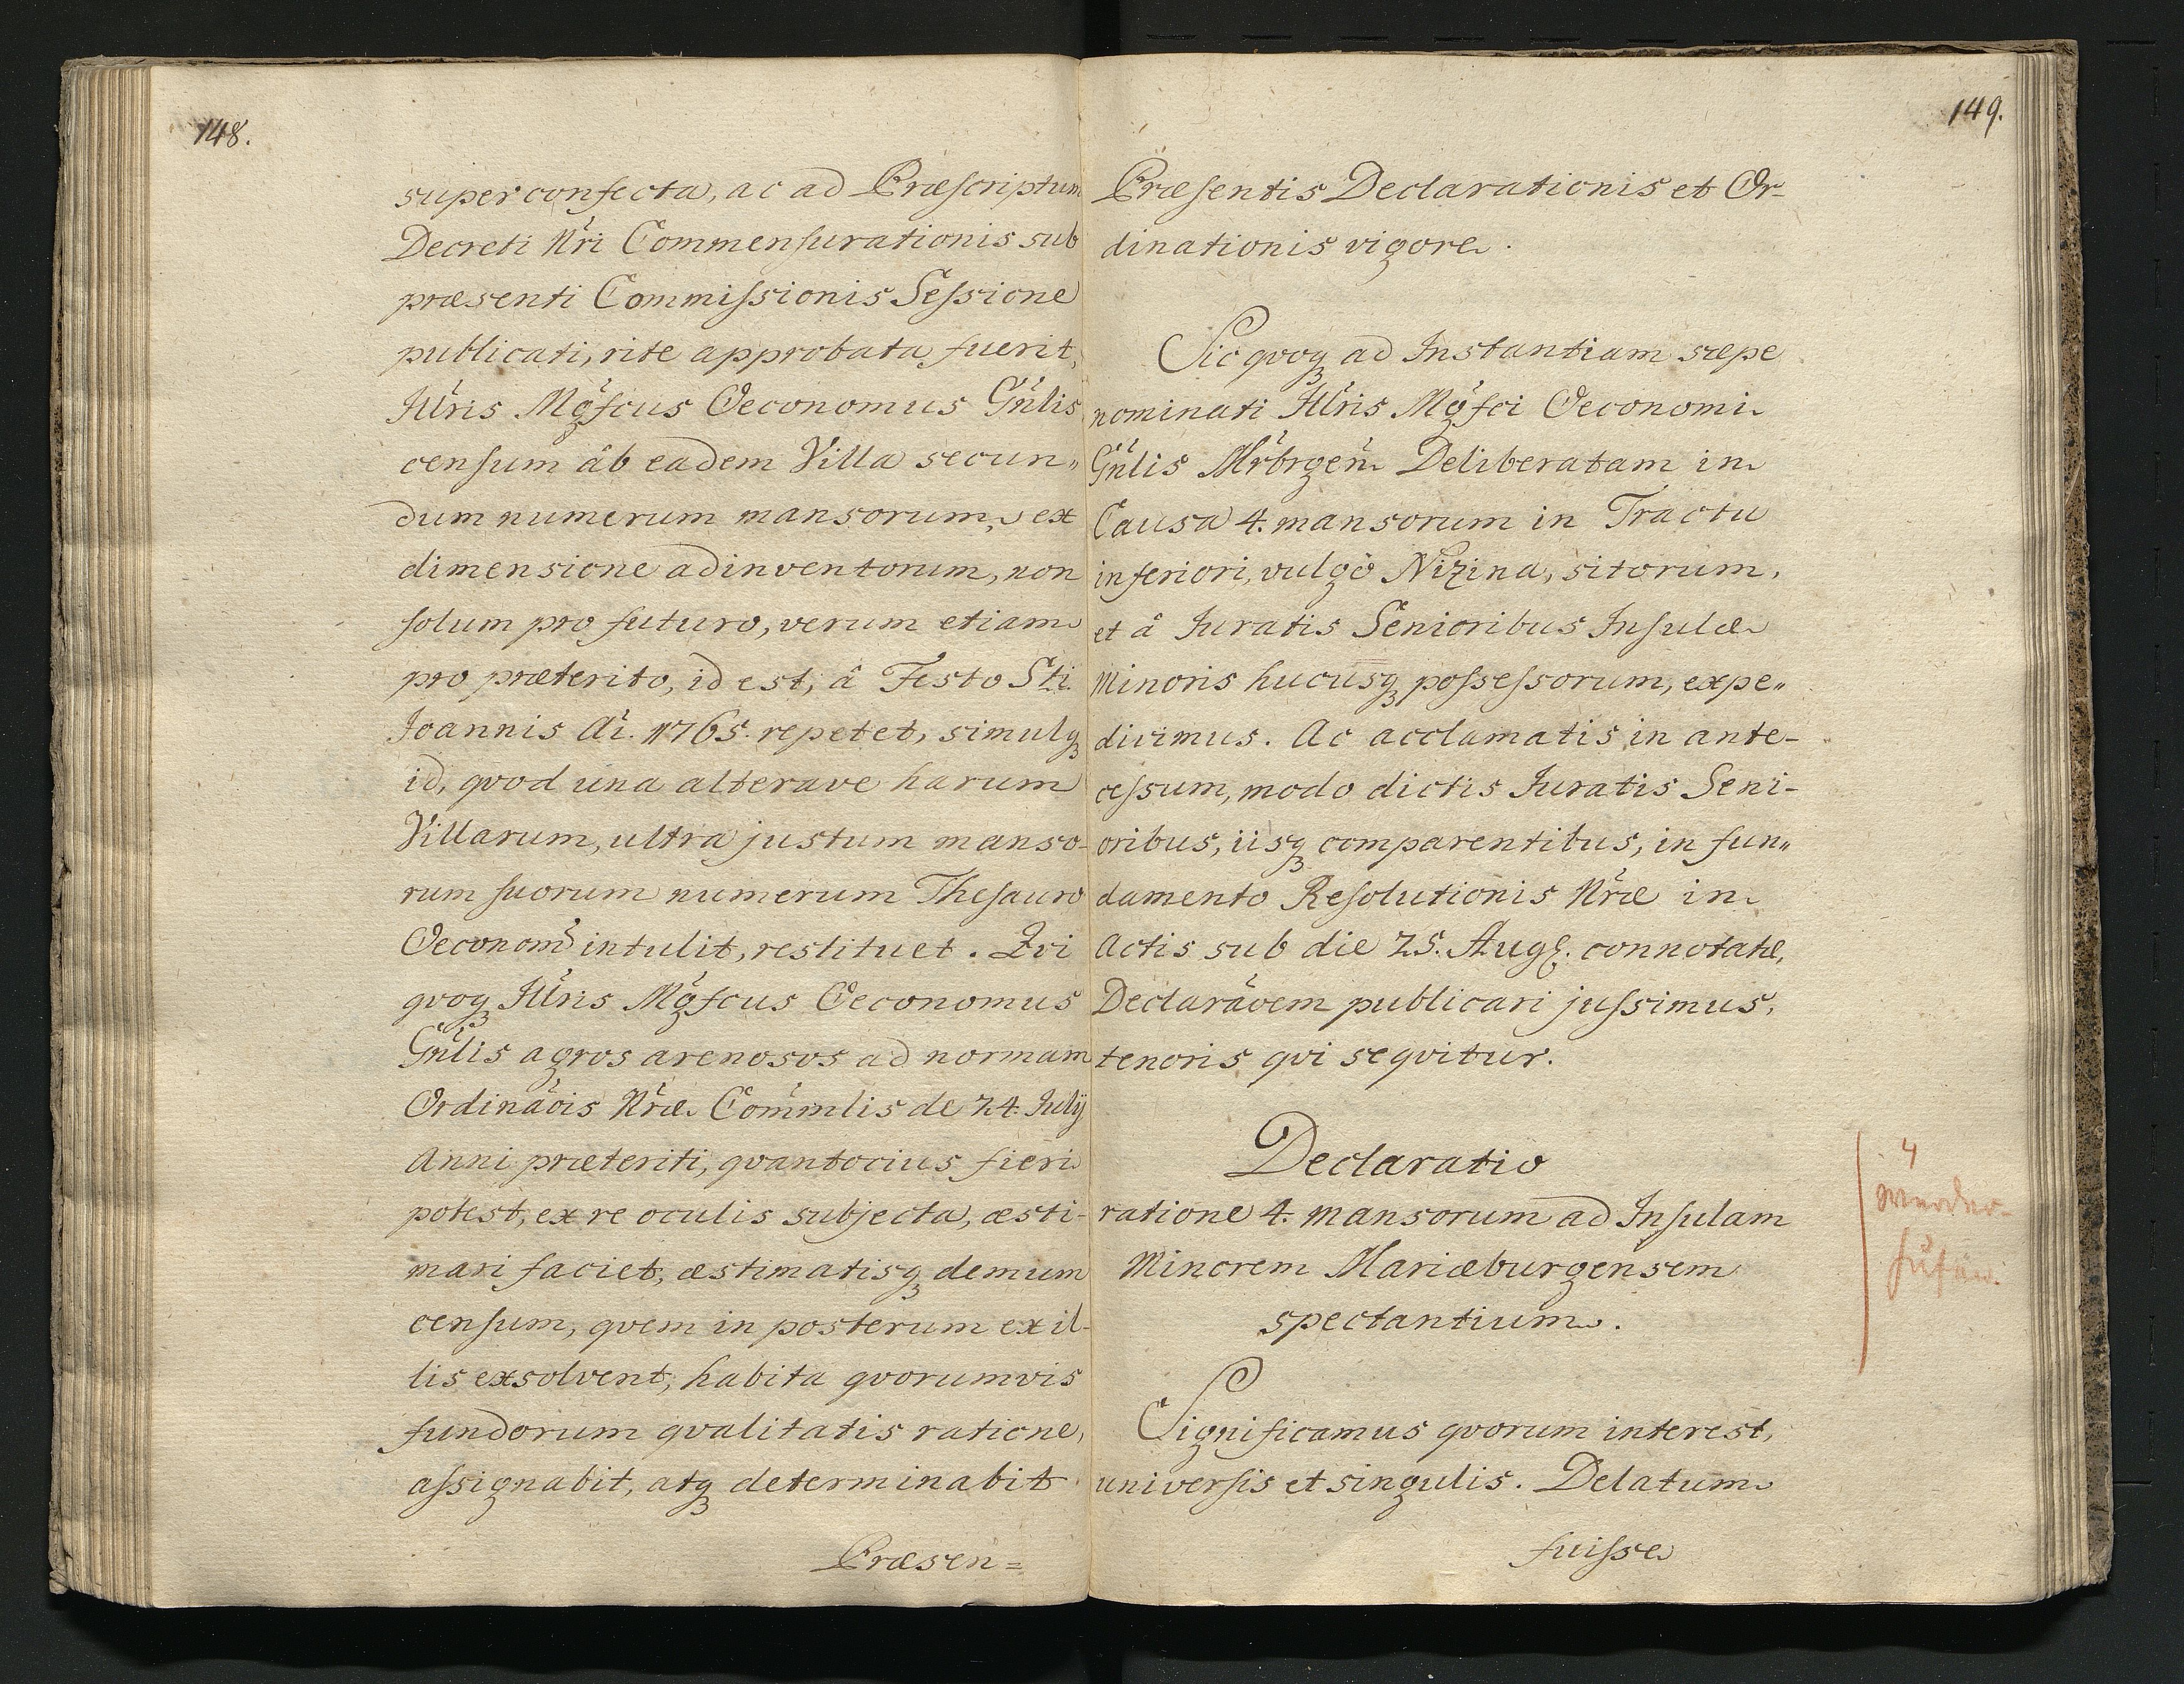 148.
super confecta, ac ad Præscriptum
Decreti Nri Commensurationis sub
præsenti Commissionis Sessione
publicati, rite approbata fuerit,
Illris Mgfcus Oeconomus Gnlis
censum âb eadem Villa secun„
dum numerum mansorum, ex
dimensione adinventorum, non
solum pro futuro, verum etiam
pro præterito, id est, â Festo Sti
Joannis Ai. 1765. repetet, simulq
id, qvod una alterave harum
Villarum, ultra justum manso-
rum suorum numerum Thesauro
Oeconom intulit, restituet. Qvi
qvoq Illris Mgfcus Oeconomus
Gnlis agros arenosos ad normam
Ordinaois Nræ Commlis de 24. Julij
Anni præteriti, qvantocius fieri
potest, ex re oculis subjecta, æsti-
mari faciet, æstimatisq demum
censum, qvem in posterum ex il-
lis exsolvent, habita qvorumvis
fundorum qvalitatis ratione,
assignabit, atq determinabit
Præsen=
149.
Præsentis Declarationis et Or-
dinationis vigore.
Sic qvoq ad Instantiam sæpe
nominati Illris Mgfci Oeconomi
Gnlis Mrbrgen Deliberatam in
Causa 4. mansorum in Tractu
inferiori, vulgò Nizina, sitorum,
et â Juratis Senioribus Insulæ
Minoris hucusq possessorum, expe„
divimus. Ac acclamatis in ante-
cessum, modo dictis Juratis Seni-
oribus, iisq comparentibus, in fun„
damento Resolutionis Nræ in
Actis sub die 25. Aug. connotatæ,
Declaraoem publicari jussimus,
tenoris qvi seqvitur.
Declaratio
ratione 4. mansorum ad Insulam
Minorem Mariæburgensem
spectantium.
4
Significamus qvorum interest,
universis et singulis. Delatum
fuisse